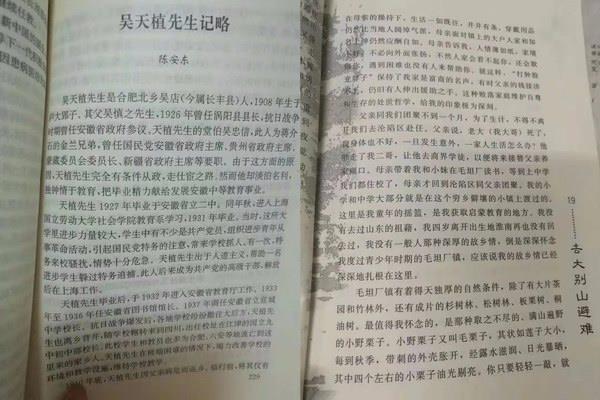 吴天植先生记略
陈安东
吴天植先生是合肥北乡吴店(今属长丰县)人,1908年生于
大郢子。其父吴慎之先生,1926年曾任涡阳县县长,抗日战争
时期曾任安徽省政府参议。天植先生的堂伯吴忠信,此人为蒋介
石的金兰兄弟,曾任国民党安徽省政府主席、贵州省政府主席、
蒙藏委员会委员长、新疆省政府主席等要职。由于这方面的原
因,天植先生完全有条件从政,走仕宦之路,然而他却淡泊名利,
独钟情于教育,把毕生精力献给发展安徽中等教育事业。
天植先生1927年毕业于安徽省立二中。同年秋,进入上海
国立劳动大学社会学院教育系学习,1931年毕业。当时,这所大
学里进步力量较大,学生中有不少是共产党员,组织进步青年从
事革命活动,引起国民党特务的注意,常来学校抓人。有一次,特
务来校骚扰,情势十分危急。天植先生出于人道主义,帮助一名
进步学生躲过特务追捕,此人后来成为共产党的高级干部,解放
后在上海工作。
天植先生毕业后,于1932年进入安徽省教育厅工作。1933
年至1936年任安徽省图书馆馆长。1937年调任安徽省立宣城
中学校长。抗日战争爆发后,各地学校纷纷撤往大后方,天植先
229
在母亲的操持下,生活一如既往,井井有条,穿戴用品
仍然比当地人阔绰气派。母亲面对镇上的大户人家和知
母亲告诉我,人情薄如纸,家境
不必向外面张扬,不然人家会看不起你,还会欺
遇到困难也没有人来帮助你。就这样,“打肿脸
充胖子”保持了我家是富商的名声,有时父亲的钱接济
仍旧有人伸出援助之手。这种败落家庭维护自尊
和生存的处世哲学,给我的印象极为深刻。
父亲同我们团聚不到一个月,为了生计,不得不离
开我们去沦陷区赴任。父亲说,老大(我大哥)死了,
身体也不好,一旦发生意外,一家人生活怎么办?他
带走了我二哥,让他去商界学徒,以便将来接替父亲养
家糊口。母亲带着我和小妹在毛坦厂读书,等到上中学
我们都住校了,母亲才回到沦陷区同父亲团聚。我的小
学和中学大部分就是在这个穷乡僻壤的小镇上渡过的。
这里是我童年的摇篮,是我获取启蒙教育的地方。我没
有去过山东的祖籍,我四岁离开出生地淮南也再没有回
去过,我没有一般人那种深厚的故乡情,倒是深深怀念
我度过青少年时期的毛坦厂镇,应该说我的故乡情已经
深深地扎根在这里。
毛坦厂镇有着得天独厚的自然条件,除了有大片茶
园和竹林外,还有成片的杉树林、松树林、板栗树、桐
油树。最值得我怀念的,是那种取之不尽的、满山遍野
的小野栗子。小野栗子又叫毛栗子,其状如莲子大小,
每到秋季,带刺的外壳张开,经露水滋润、日光暴晒,
其中四个左右的小栗子油光剔亮。你只要轻轻一敲,就
19
去大别山避难